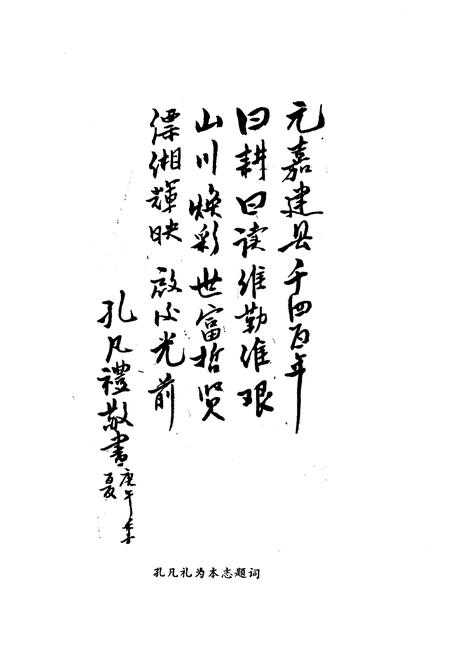 元嘉建县千四百年
曰耕曰读维勤维艰
山川焕彩世富哲贤
缥缃辉映启后光前
孔凡禮敬書
庚午季
夏
孔凡礼为本志题词